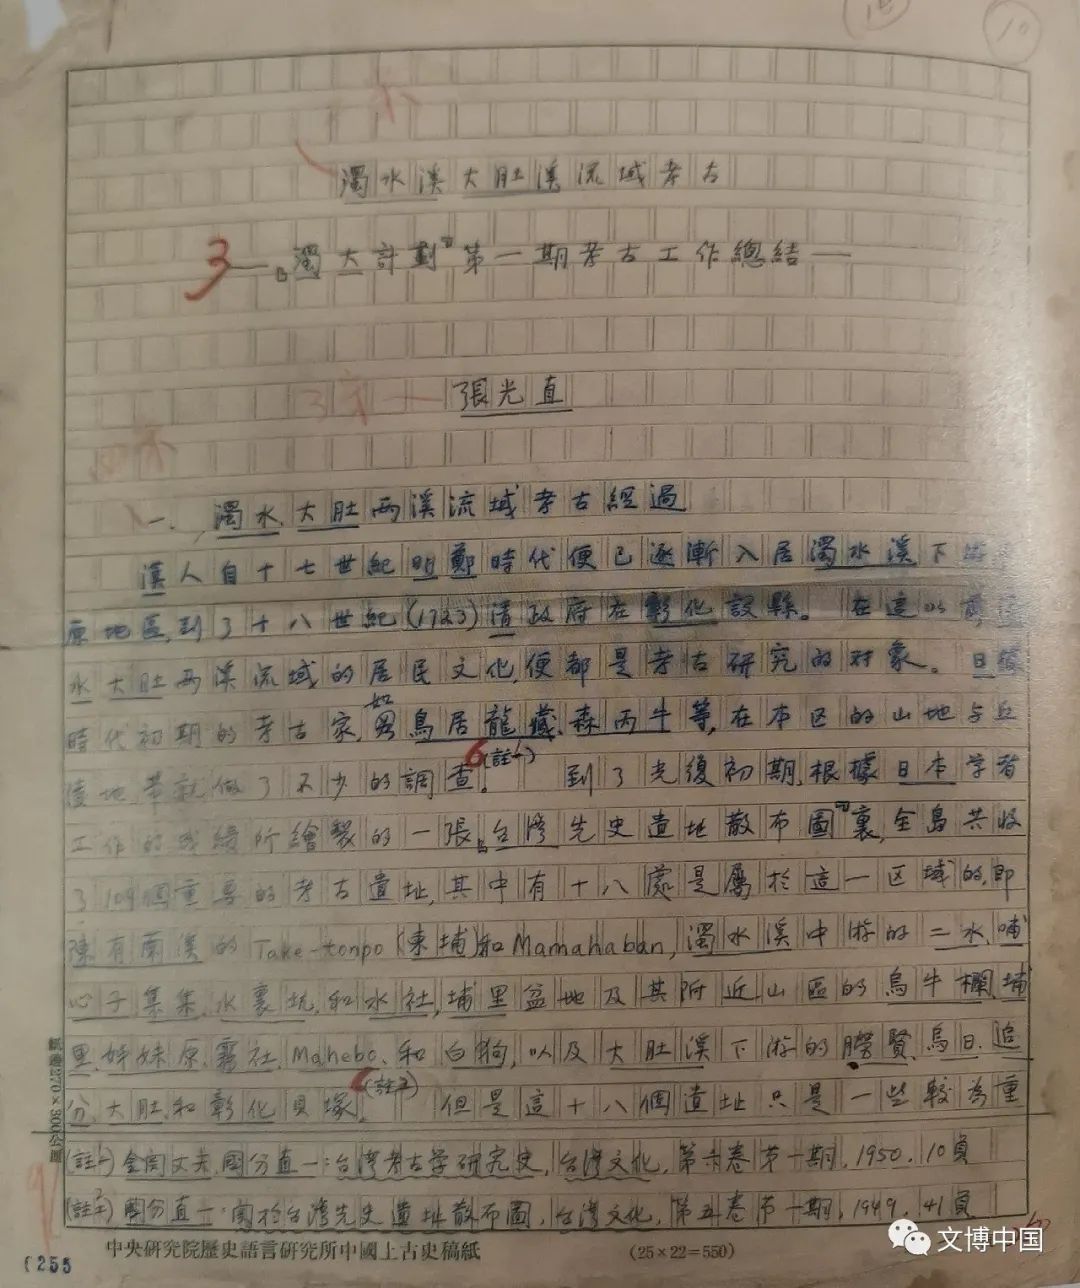 10
濁水溪大肚溪流域考古
3
—『濁大計劃』第一期考古工作總結—
張光直
一、濁水、大肚兩溪流域考古經過
漢人自十七世紀明鄭時代便已逐漸入居濁水溪下游
原地區，到了十八世紀(1723)清政府在彰化設縣。在這以前
水大肚兩溪流域的居民文化，便都是考古研究的对象。日據
時代初期的考古家，如鳥居龍藏、森丙牛等，在本区的山地与丘
陵地帶就做了不少的調查。6(註一) 到了光復初期，根據日本学者
工作的成績所繪製的一張『台灣先史遺址散布圖』裏，全島共收
了109個重要的考古遺址，其中有十八處是屬於這一区域的，即
陳有蘭溪的Take-tonpo(東埔)和Mamahaban，濁水溪中游的二水、哺
心子集集、水裏坑、和水社，埔里盆地及其附近山區的烏牛欄、埔
里、姊妹原、霧社、Mahebo、和白狗，以及大肚溪下游的勝賢、烏日、追
分、大肚、和彰化貝塚。(註二) 但是這十八個遺址只是一些較為重
(註一)金関丈夫、國分直一：台灣考古学研究史，台灣文化，第六卷第一期，1950，10頁
(註二)國分直一：関於台灣先史遺址散布圖，台灣文化，第五卷第一期，1949，41頁
中央研究院歷史語言研究所中國上古史稿紙
(25×22=550)
紙邊270×300公厘
(255
文博中国